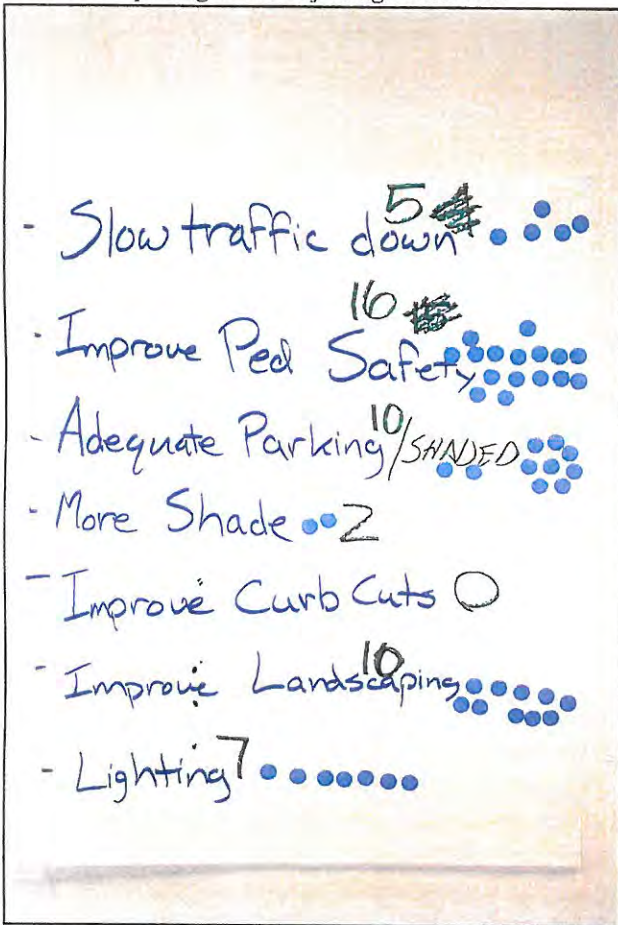 - Slow traffic down 5
- Improve Ped Safety 16
- Adequate Parking/SHADED 10
- More Shade 2
- Improve Curb Cuts 0
- Improve Landscaping 10
- Lighting 7